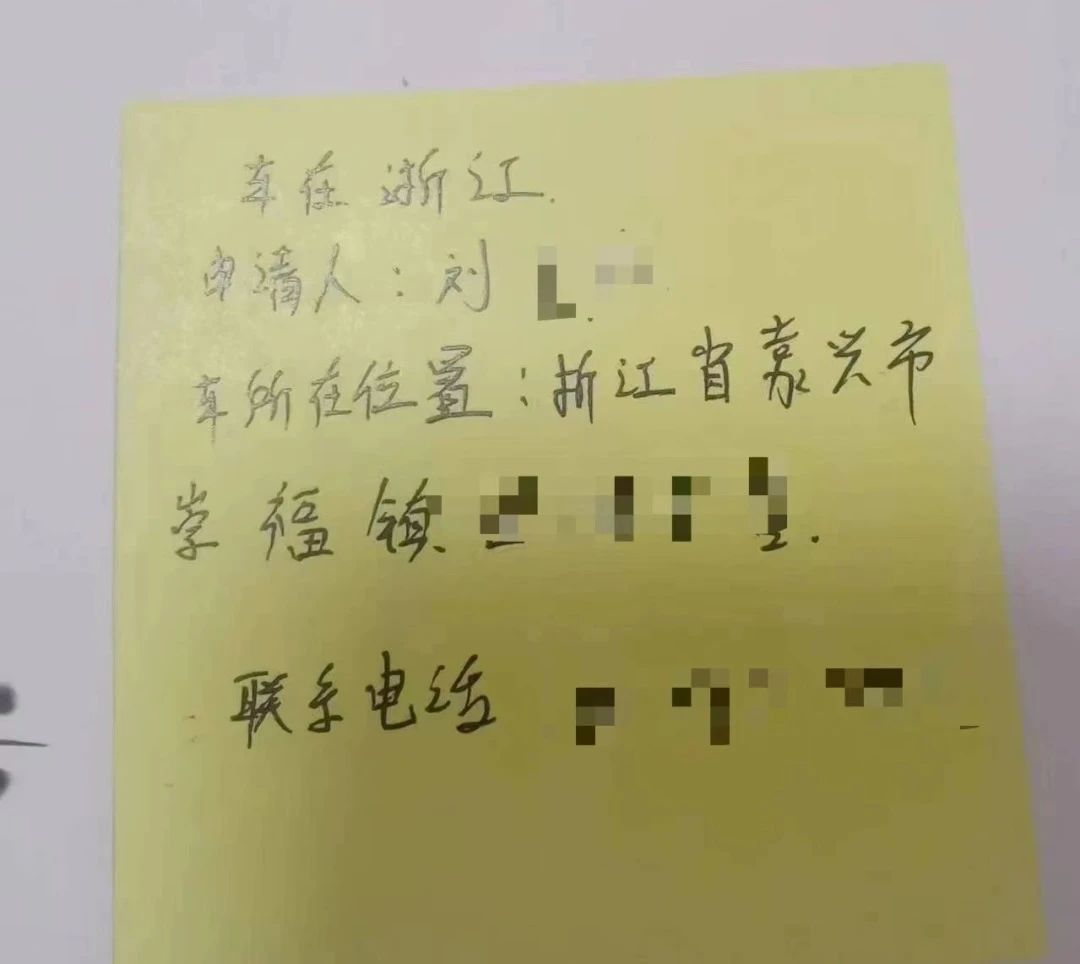 车在浙江.
申请人:刘
车所在位置:浙江省嘉兴市
崇福镇
联系电话